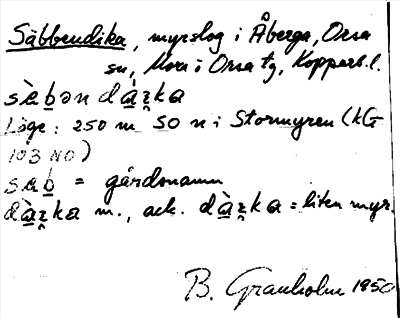 Säbbendika, myrslog i Åberga, Orsa
sn, Mora i Orsa tg, Kopparb.l.
sàbəndàʐka
Läge: 250 m SO n i Stormyren (kG
103 NO)
sab = gårdsnamn
dàʐka m., ack. dàʐka = liten myr.
B. Granholm 1950